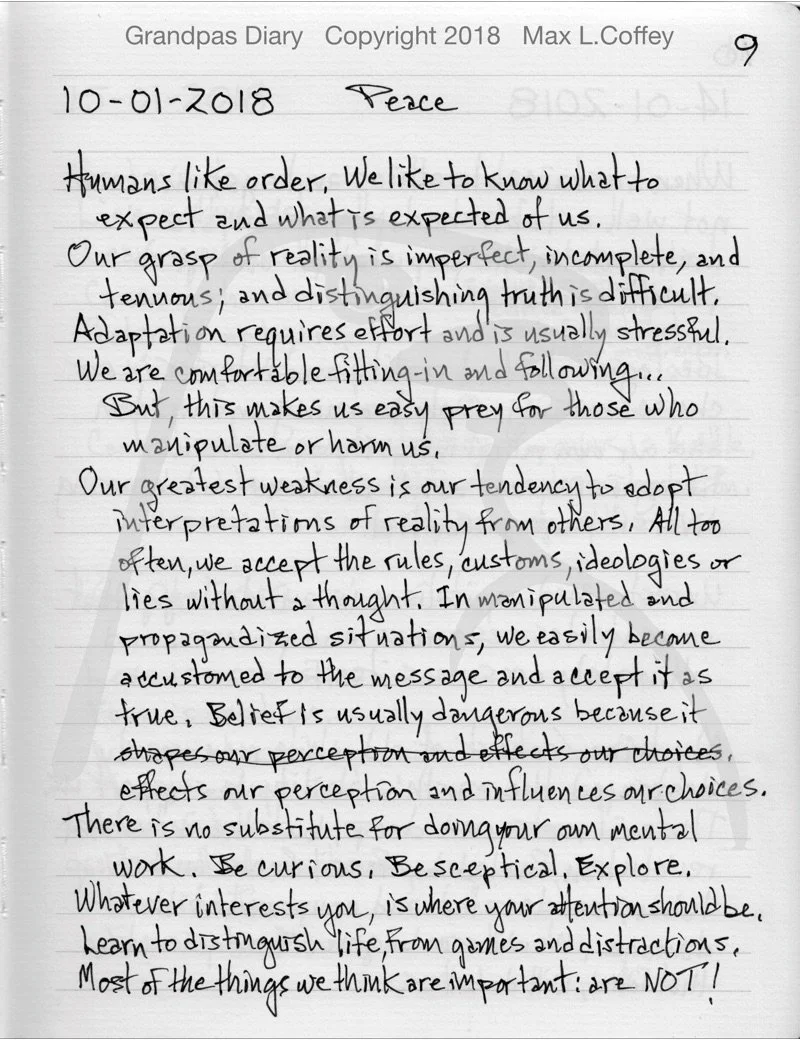 Grandpas Diary Copyright 2018 Max L.Coffey
9
10-01-2018 Peace
Humans like order. We like to know what to
expect and what is expected of us.
Our grasp of reality is imperfect, incomplete, and
tenuous; and distinguishing truth is difficult.
Adaptation requires effort and is usually stressful.
We are comfortable fitting-in and following...
But, this makes us easy prey for those who
manipulate or harm us.
Our greatest weakness is our tendency to adopt
interpretations of reality from others. All too
often, we accept the rules, customs, ideologies or
lies without a thought. In manipulated and
propagandized situations, we easily become
accustomed to the message and accept it as
true. Belief is usually dangerous because it
shapes our perception and effects our choices.
effects our perception and influences our choices.
There is no substitute for doing your own mental
work. Be curious. Be sceptical. Explore.
Whatever interests you, is where your attention should be.
Learn to distinguish life, from games and distractions.
Most of the things we think are important: are NOT!